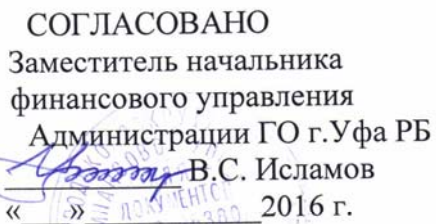 СОГЛАСОВАНО
Заместитель начальника
финансового управления
Администрации ГО г.Уфа РБ
В.С. Исламов
«    » 2016 г.